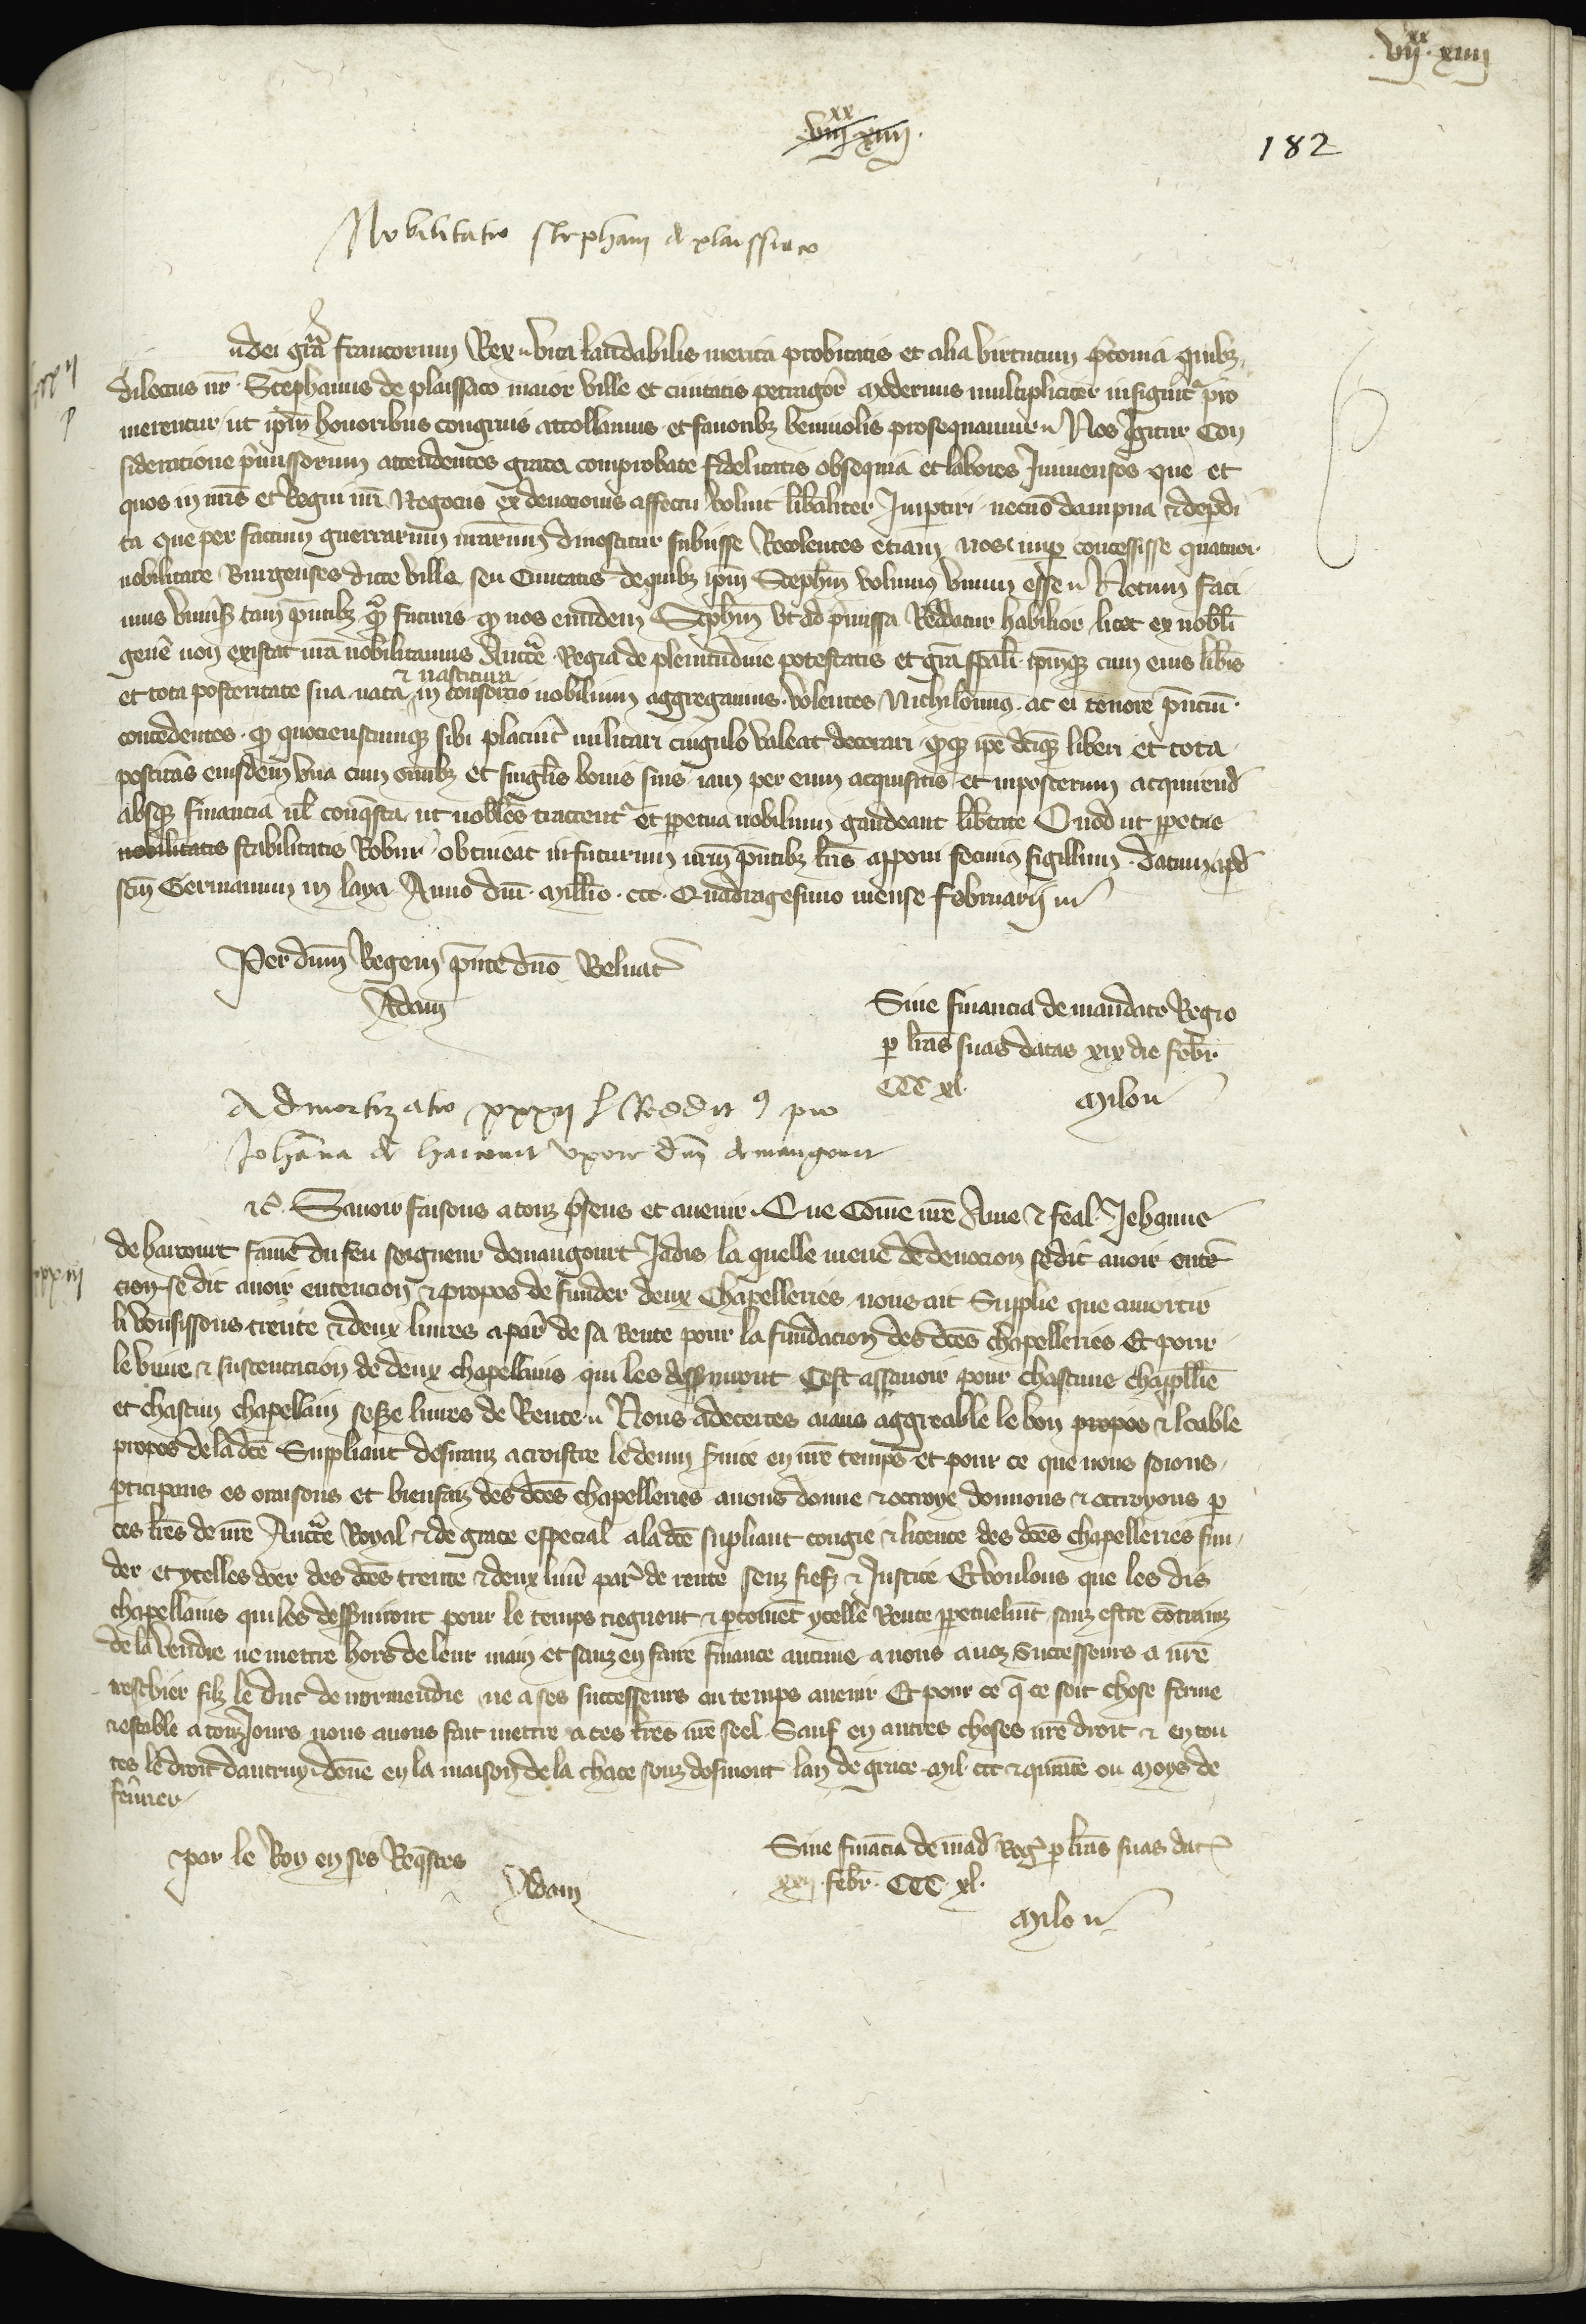 .vii.xx xiiii
.viii.xx xiiii.
182
Nobilitatio Stephani de plaissaco
dei gra francorum Rex vita laudabilis merita probitatis et alia virtutum pconia quibz
dilectus nr Stephanus de plaissaco maior ville et civitatis petragor modernus multipliciter insignitr pro
merentur ut ipm honoribus congruis attollamus et favoribz benivolis prosequamur Nos Igitur Con
sideratione pmissorum attendentes grata comprobate fidelitatis obsequia et labores Inmensos que et
quos in nris et Regni nri Negociis ex devocionis affectu voluit libaliter Impertiri necno dampna et depdi
ta que per factum guerrarum nrarum dinoscitur subiisse Recolentes etiam nos nup concessisse quatuor
nobilitare Burgenses dicte ville seu Civitatis de quibz ipm Stephm volumus unum esse Notum faci
mus univsis tam pntibz qm futuris qz nos eundem Stephm ut ad pmissa Reddatur habilior licet ex nobili
gene non existat nra nobilitamus Auctte Regia de plenitudine potestatis et gra spali ipmqz cum eius libis
et tota posteritate sua nata et nascitura in consorcio nobilium aggregamus volentes Nichilomus ac ei tenore pncium
concedentes qz quocienscumqz sibi placuit militari cingulo valeat decorari qzqz ipe dciqz liberi et tota
postitas eiusdem una cum omibz et singlis bonis suis iam per eum acquisitis et inposterum acquirend
absqz financia vl conqsta ut nobiles tractentr et ppetua nobilium gaudeant libtate Quod ut ppetue
nobilitatis stabilitatis Robur obtineat infuturum nrm pntibz lris apponi fecimus sigillum datum apd
scm Germanum in laya Anno dni millio ccc Quadragesimo mense februarii
Per dnm Regem pnte dno Beluac
Adam
Sine financia de mandato Regio
p lras suas datas xix die febr
CCC xl.
Milon
Admortizatio xxxii l Reddit pro
Johanna de haricourt uxore dni de maugourt
etc. Savoir faisons a touz psens et avenir Que Come nre Ame et feal Jehanne
de harcourt fame du feu seigneur demaugourt Jadis la quelle meue de devocion se dit avoir enten
cion se dit avoir entencion et propos de funder deux Chapelleries nous ait Supplie que amortir
li vousissons trente et deux livres a par de sa Rente pour la fundacion des dces chapelleries Et pour
le vivre et sustentacion de deux chapellains qui les desserviront Cest assavoir pour chascune chapellie
et chascun chapellain seize livres de Rente Nous adecertes aians aggreable le bon propos et loable
propos de la dce Suppliant desirans acroistre le devin svice en nre temps et pour ce que nous soions
pticipans es oraisons et bienfaiz des dces chapelleries avons donne et octroye donnons et octroyons p
ces lres de nre Auctte Royal et de grace especial a la dce supliant congie et licence des dces chapelleries fun
der et ycelles doer des dces trente et deux livr par de rente senz fief et Justice Et voulons que les dis
chapellains qui les desserviront pour le temps tiegnent et pcoivet ycelle Rente ppetuelmt sanz estre contrainz
de la vendre ne mettre hors de leur main et sanz en faire finance aucune a nous a noz successeurs a nre
treschier filz le duc de normendie ne a ses successeurs ou temps avenir Et pour ce q ce soit chose ferme
et estable a touzjours nous avons fait mettre a ces lres nre seel Sauf en autres choses nre droit et en tou
tes le droit dautruy done en la maison de la chace souz dosmont lan de grace mil ccc et quarate ou moys de
fevrier
par le Roy en ses Reqstes
Adam
Sine finacia de mad Reg p lras suas dat
xxii febr CCC xl.
Milon